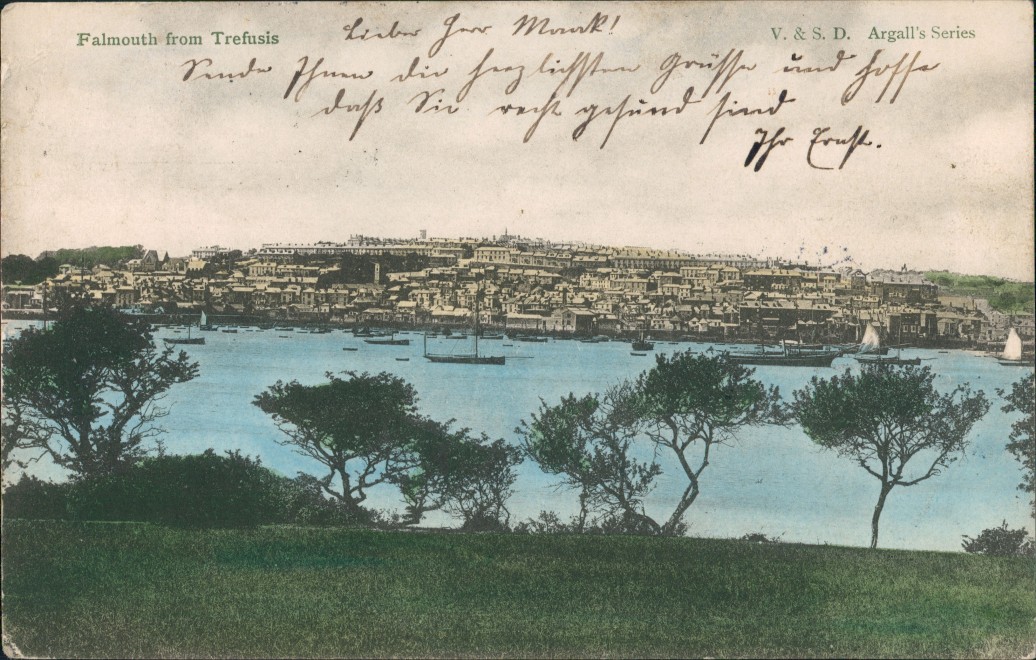 Falmouth from Trefusis
V. & S. D. Argall's Series
Lieber Herr Maark!
Sende Ihnen die herzlichsten Grüsse und hoffe
daß Sie recht gesund sind
Ihr Ernst.